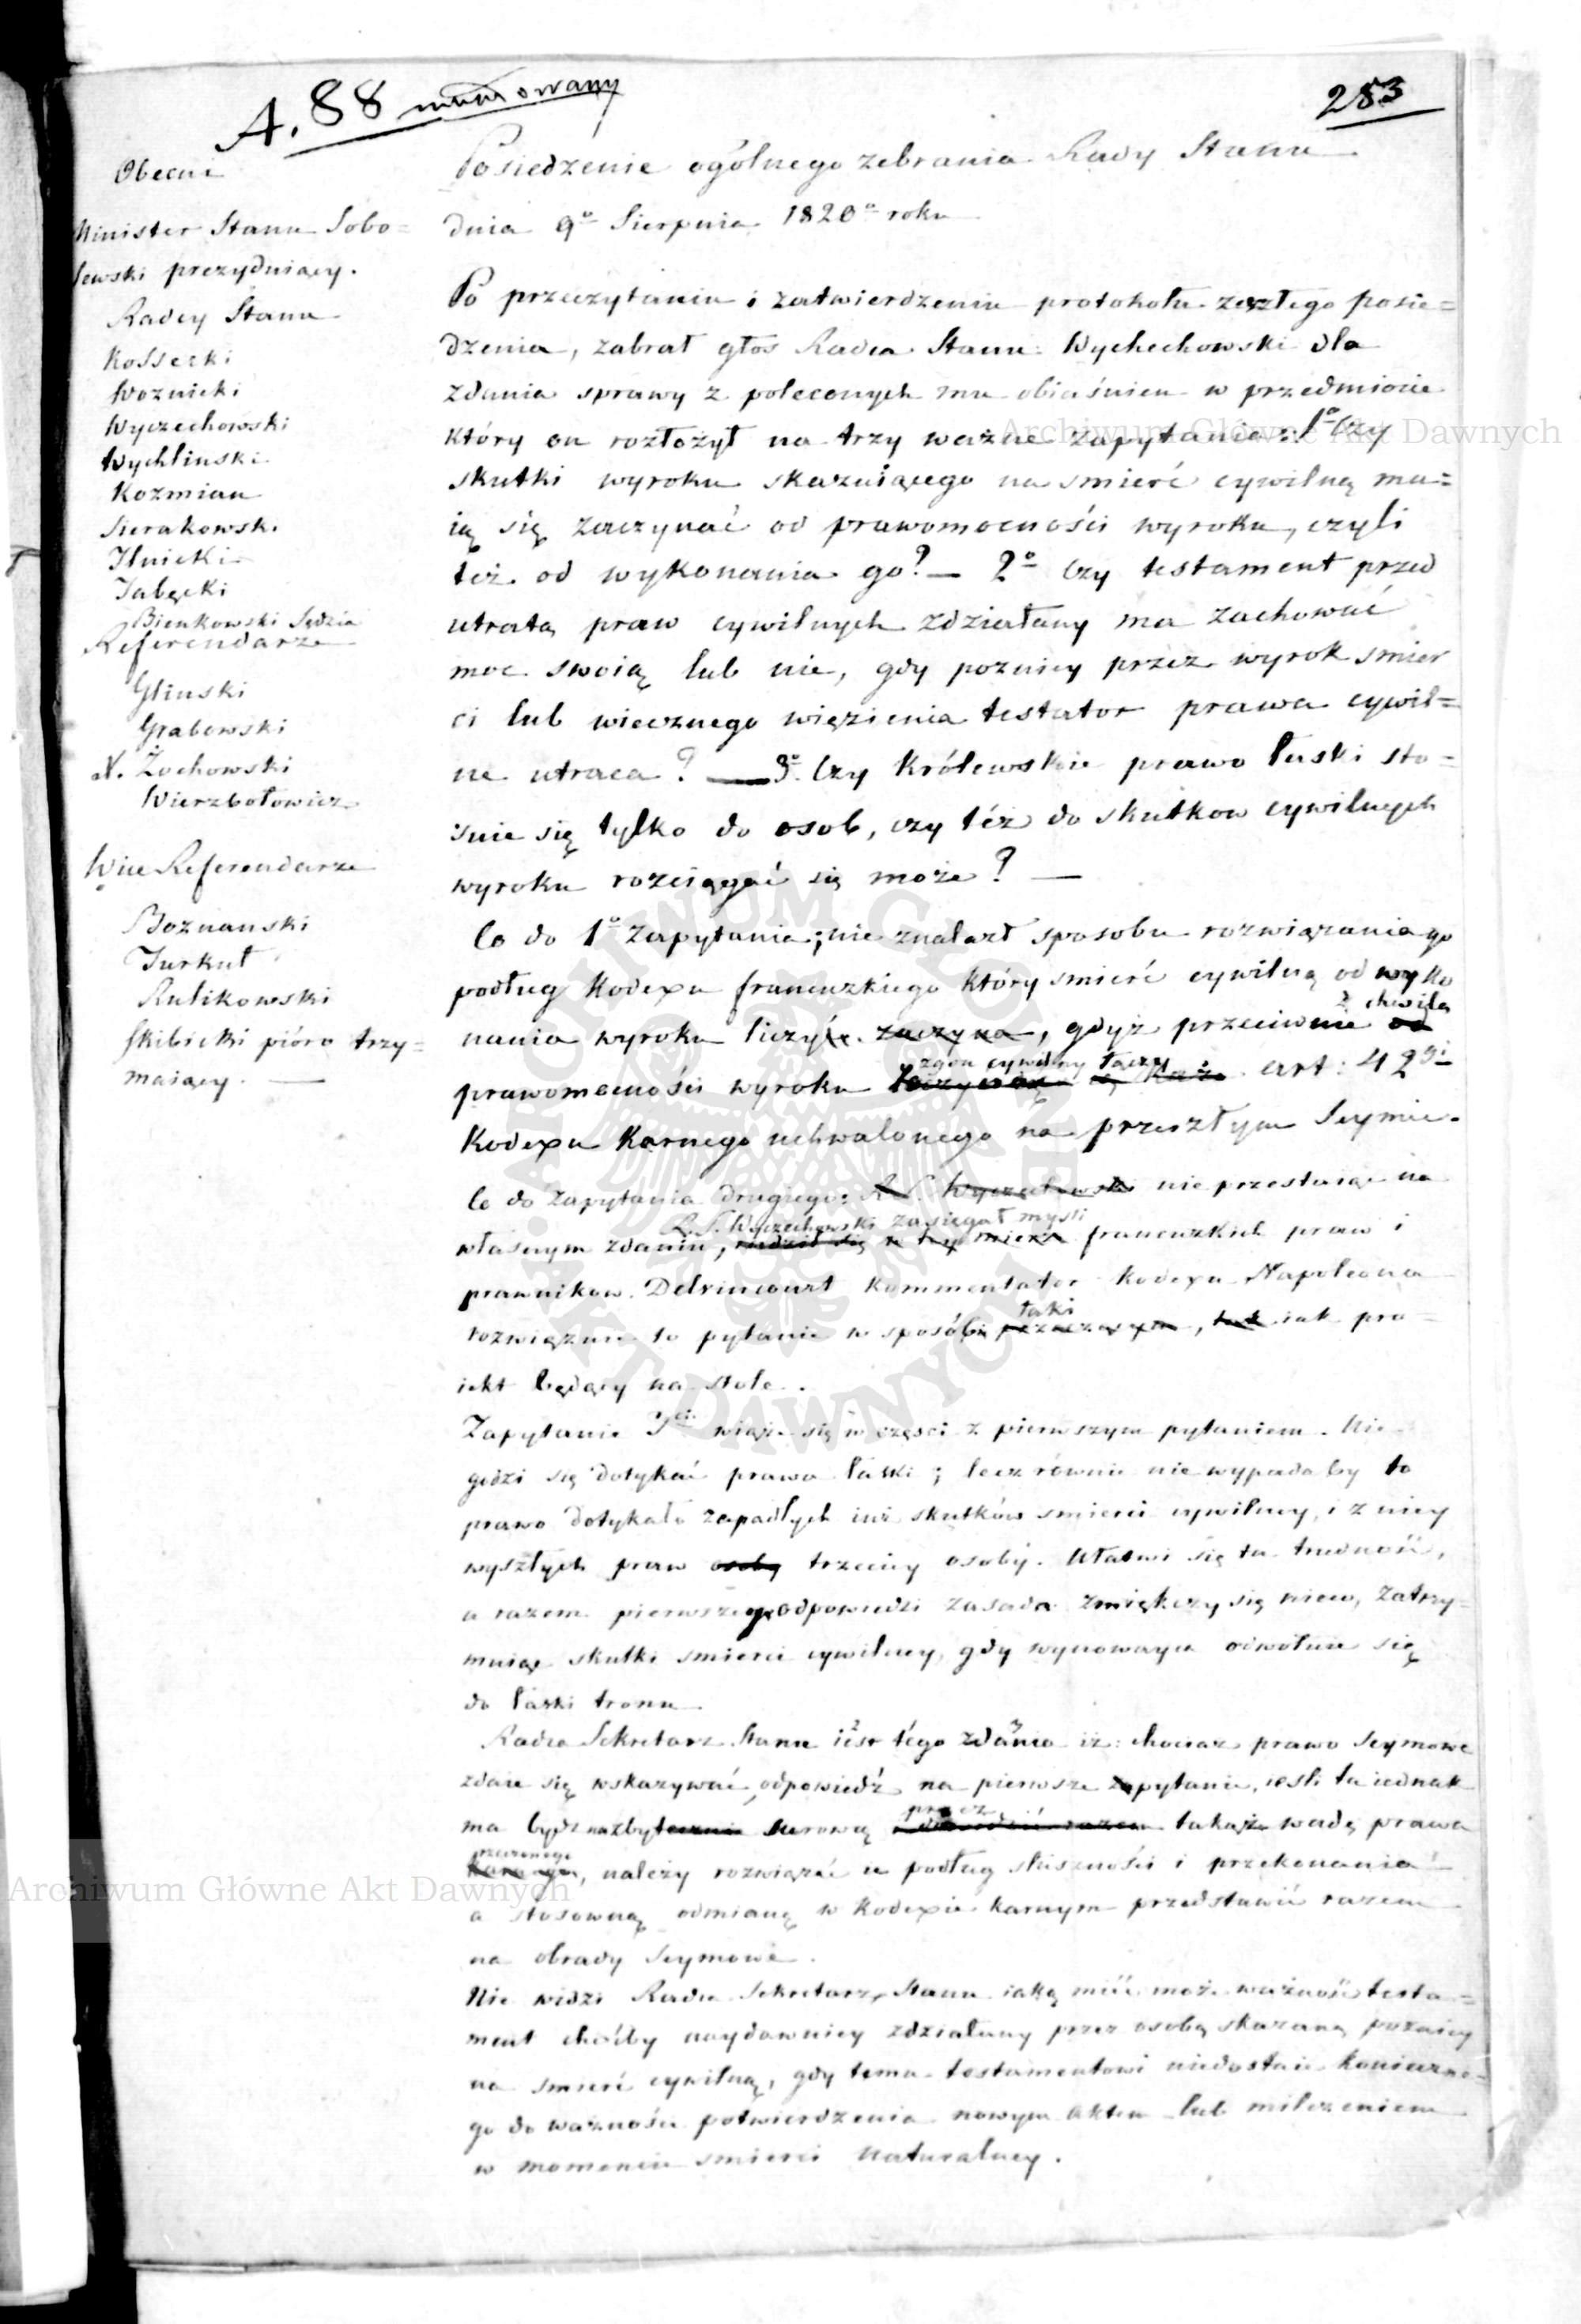 A. 88 mundowany
283
Obecni
Minister Stanu Sobo=
lewski prezyduiący.
Radcy Stanu
Kossecki
Woznicki
Wyczechowski
Wychliński
Kozmian
Sierakowski
Ilnicki
Jabęcki
Bienkowski Sędzia
Referendarze
Glinski
Grabowski
X. Żochowski
Wierzbołowicz
Wice Referendarze
Boznanski
Turkuł
Rulikowski
Skibicki pióro trzy=
maiący. —
Posiedzenie ogólnego zebrania Rady Stanu
dnia 9o Sierpnia 1820o roku
Po przeczytaniu i zatwierdzeniu protokołu zeszłego posie=
dzenia, zabrał głos Radca Stanu Wychechowski dla
zdania sprawy z poleconych mu obiaśnien w przedmiocie
który on rozłożył na trzy ważne zapytania: 1o Czy
skutki wyroku skazuiącego na smierć cywilną ma=
ią się zaczynać od prawomocności wyroku, czyli
też od wykonania go? — 2o Czy testament przed
utratą praw cywilnych zdziałany ma zachować
moc swoią lub nie, gdy pozniey przez wyrok smier
ci lub wiecznego więzienia testator prawa cywil=
ne utraca? — 3o Czy Królewskie prawo łaski sto=
suie się tylko do osob, czy też do skutkow cywilnych
wyroku rozciągać się może? —
Co do 1o Zapytania; nie znalazł sposobu rozwiązania go
podług Kodexu francuzkiego który smierć cywilną od wyko
z chwilą
nania wyroku liczyć zaczyna, gdyż przeciwnie od
zgon cywilny łączy
prawomocności wyroku liczyć każe art: 42gi
Kodexu Karnego uchwalonego na przeszłym Seymie.
Co do zapytania drugiego: R.S. Wyczechowski nie przestaiąc na
R.S. Wyczechowski zasięgał mysli
własnym zdaniu, radził się w tey mierze francuzkich praw i
prawnikow. Delvincourt Kommentator Kodexu Napoleona
taki
rozwiązuie to pytanie w sposób, tak iak pro=
iekt będący na stole.
Zapytanie 3cie wiąże się w częsci z pierwszym pytaniem. Nie
godzi się dotykać prawa łaski; lecz równie nie wypada by to
prawo dotykało zapadłych iuż skutków smierci cywilney, i z niey
wyszłych praw osoby trzeciey osoby. Ułatwi się ta trudność,
a razem pierwszey odpowiedzi zasada zmiękczy się nieco, zatrzy=
muiąc skutki smierci cywilney, gdy wynowayca odwołuie się
do łaski tronu.
Radca Sekretarz Stanu iest tego zdania iż: chociaz prawo Seymowe
zdaie się wskazywać odpowiedź na pierwsze zapytanie, iesli ta iednak
przez
ma bydz nazbytecznie surową takąże wadę prawa
rzeczonego
karnego, należy rozwiązać ie podług słuszności i przekonania
a stosowną odmianę w Kodexie karnym przedstawić razem
na obrady Seymowe.
Nie widzi Radca Sekretarz Stanu iaką mieć może ważność testa=
ment choćby naydawniey zdziałany przez osobę skazaną pozniey
na smierć cywilną, gdy temu testamentowi niedostaie konieczne=
go do ważności potwierdzenia nowym aktem lub milczeniem
w momencie smierci naturalney.